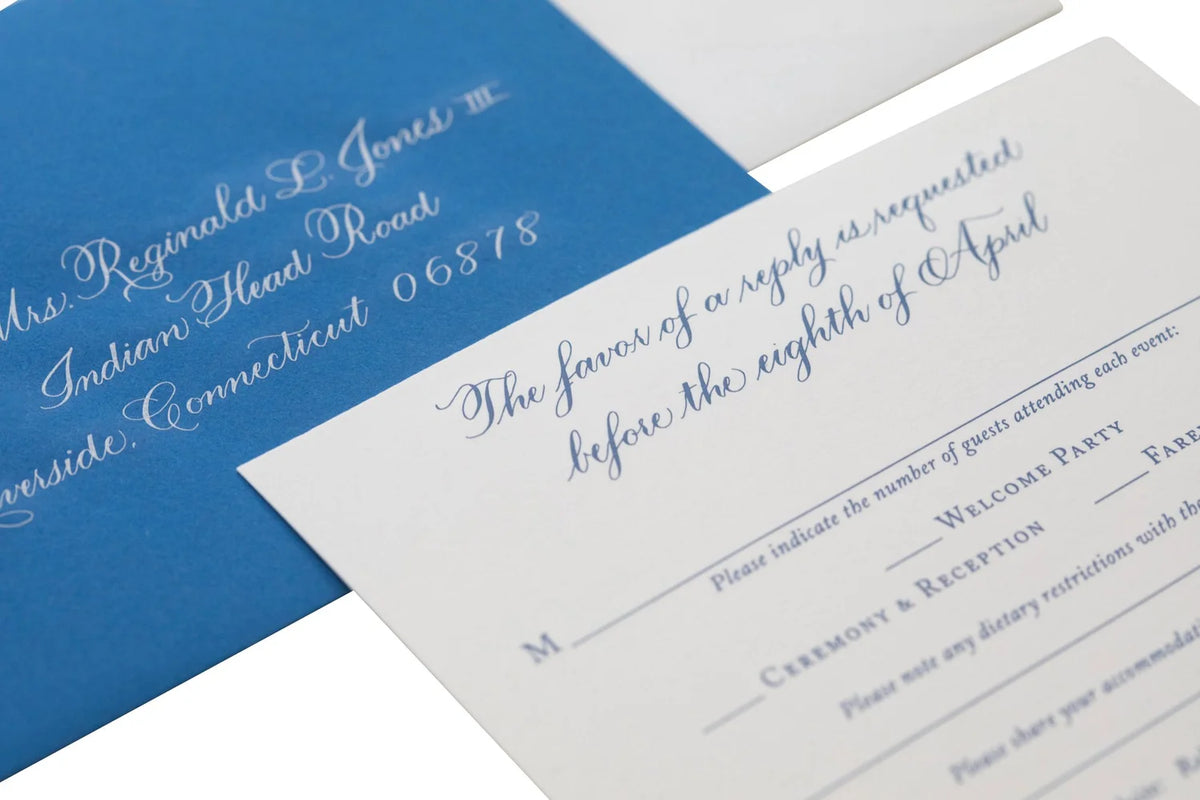 Mrs. Reginald L. Jones III
Indian Head Road
Connecticut 06878
The favor of a reply is requested
before the eighth of April
M
Please indicate the number of guests attending each event:
Welcome Party
Ceremony & Reception
Please note any dietary restrictions with the
Please share your